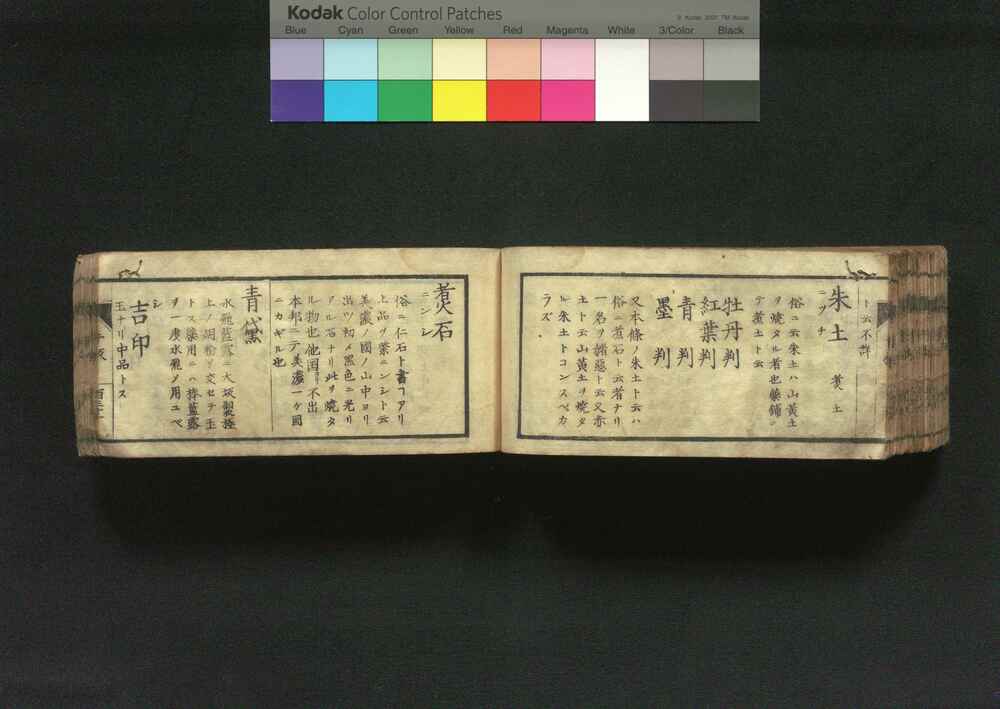 Kodak Color Control Patches
Blue Cyan Green Yellow Red Magenta White 3/Color Black
ト云不詳
朱土 煑土
ニツチ
俗ニ云朱土ハ山黄土
ヲ焼タル者也藥鋪ニ
テ煑土ト云
牡丹判
紅葉判
青 判
墨 判
又本條ノ朱土ト云ハ
俗ニ煑石ト云者ナリ
一名ヲ諸慈ト云又赤
土ト云山黄土ヲ焼タ
ル朱土トコンスベカ
ラズ
煑石
ニンシ
俗ニ仁石ト書コアリ
上品ヲ紫ニンシト云
美濃ノ國ノ山中ヨリ
出ツ初メ黒色ニ光リ
アル石ナリ此ヲ焼タ
ル物也他国ヨリ不出
本邦ニテ美濃一ケ國
ニカギル也
青黛
水飛藍露ハ大坂製極
上ノ胡粉ニ交セテ上
トス藥用ニハ捧藍露
ヲ一度水飛ノ用ユベ
シ
吉印
玉ナリ中品トス